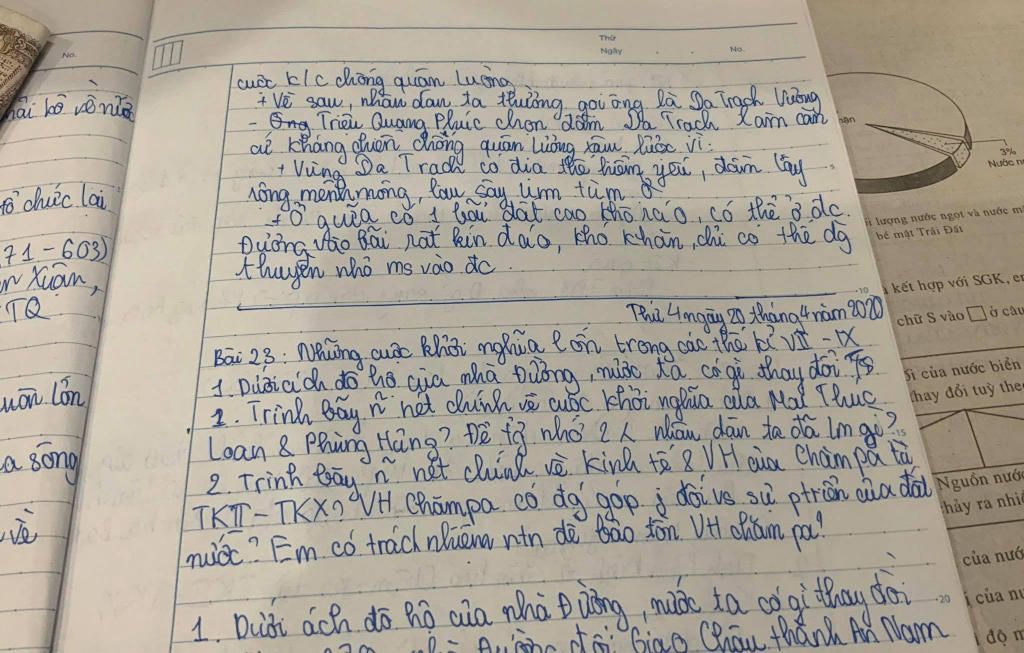 No.
Thứ
Ngày . . No.
cuộc k/c chống quân Lương
+ Về sau, nhân dân ta thường gọi ông là Dạ Trạch Vương
- Ông Triệu Quang Phục chọn đầm Dạ Trạch làm căn
cứ kháng chiến chống quân Lương xâm lược vì:
+ Vùng Dạ Trạch có địa thế hiểm yếu, đầm lầy
rộng mênh mông, lau sậy um tùm
+ Ở giữa có 1 bãi đất cao khô ráo, có thể ở đc.
Đường vào bãi rất kín đáo, khó khăn, chỉ có thể dg
thuyền nhỏ ms vào đc.
Thứ 4 ngày 20 tháng 4 năm 2020
Bài 23: Những cuộc khởi nghĩa lớn trong các thế kỉ VII - IX
1. Dưới ách đô hộ của nhà Đường, nước ta có gì thay đổi
2. Trình bày ñ nét chính về cuộc khởi nghĩa của Mai Thúc
Loan & Phùng Hưng? Để tg nhớ 2 k nhân dân ta đã lm gì?
2. Trình bày ñ nét chính về Kinh tế & VH của Chămpa từ
TKII - TKX? VH Chămpa có đg góp j đối vs sự ptriển của đất
nước? Em có trách nhiệm ntn để bảo tồn VH chăm pa?
1. Dưới ách đô hộ của nhà Đường, nước ta có gì thay đổi
nhà Đường đổi Giao Châu thành An Nam
10
15
20
về nước
tổ chức lại
71 - 603)
Xuân,
TQ
lớn
sông
về
3%
Nước
lượng nước ngọt và nước
bề mặt Trái Đất
kết hợp với SGK,
chữ S vào □ ở câu
của nước biển
thay đổi tuỳ
Nguồn nước
chảy ra
của
của
độ